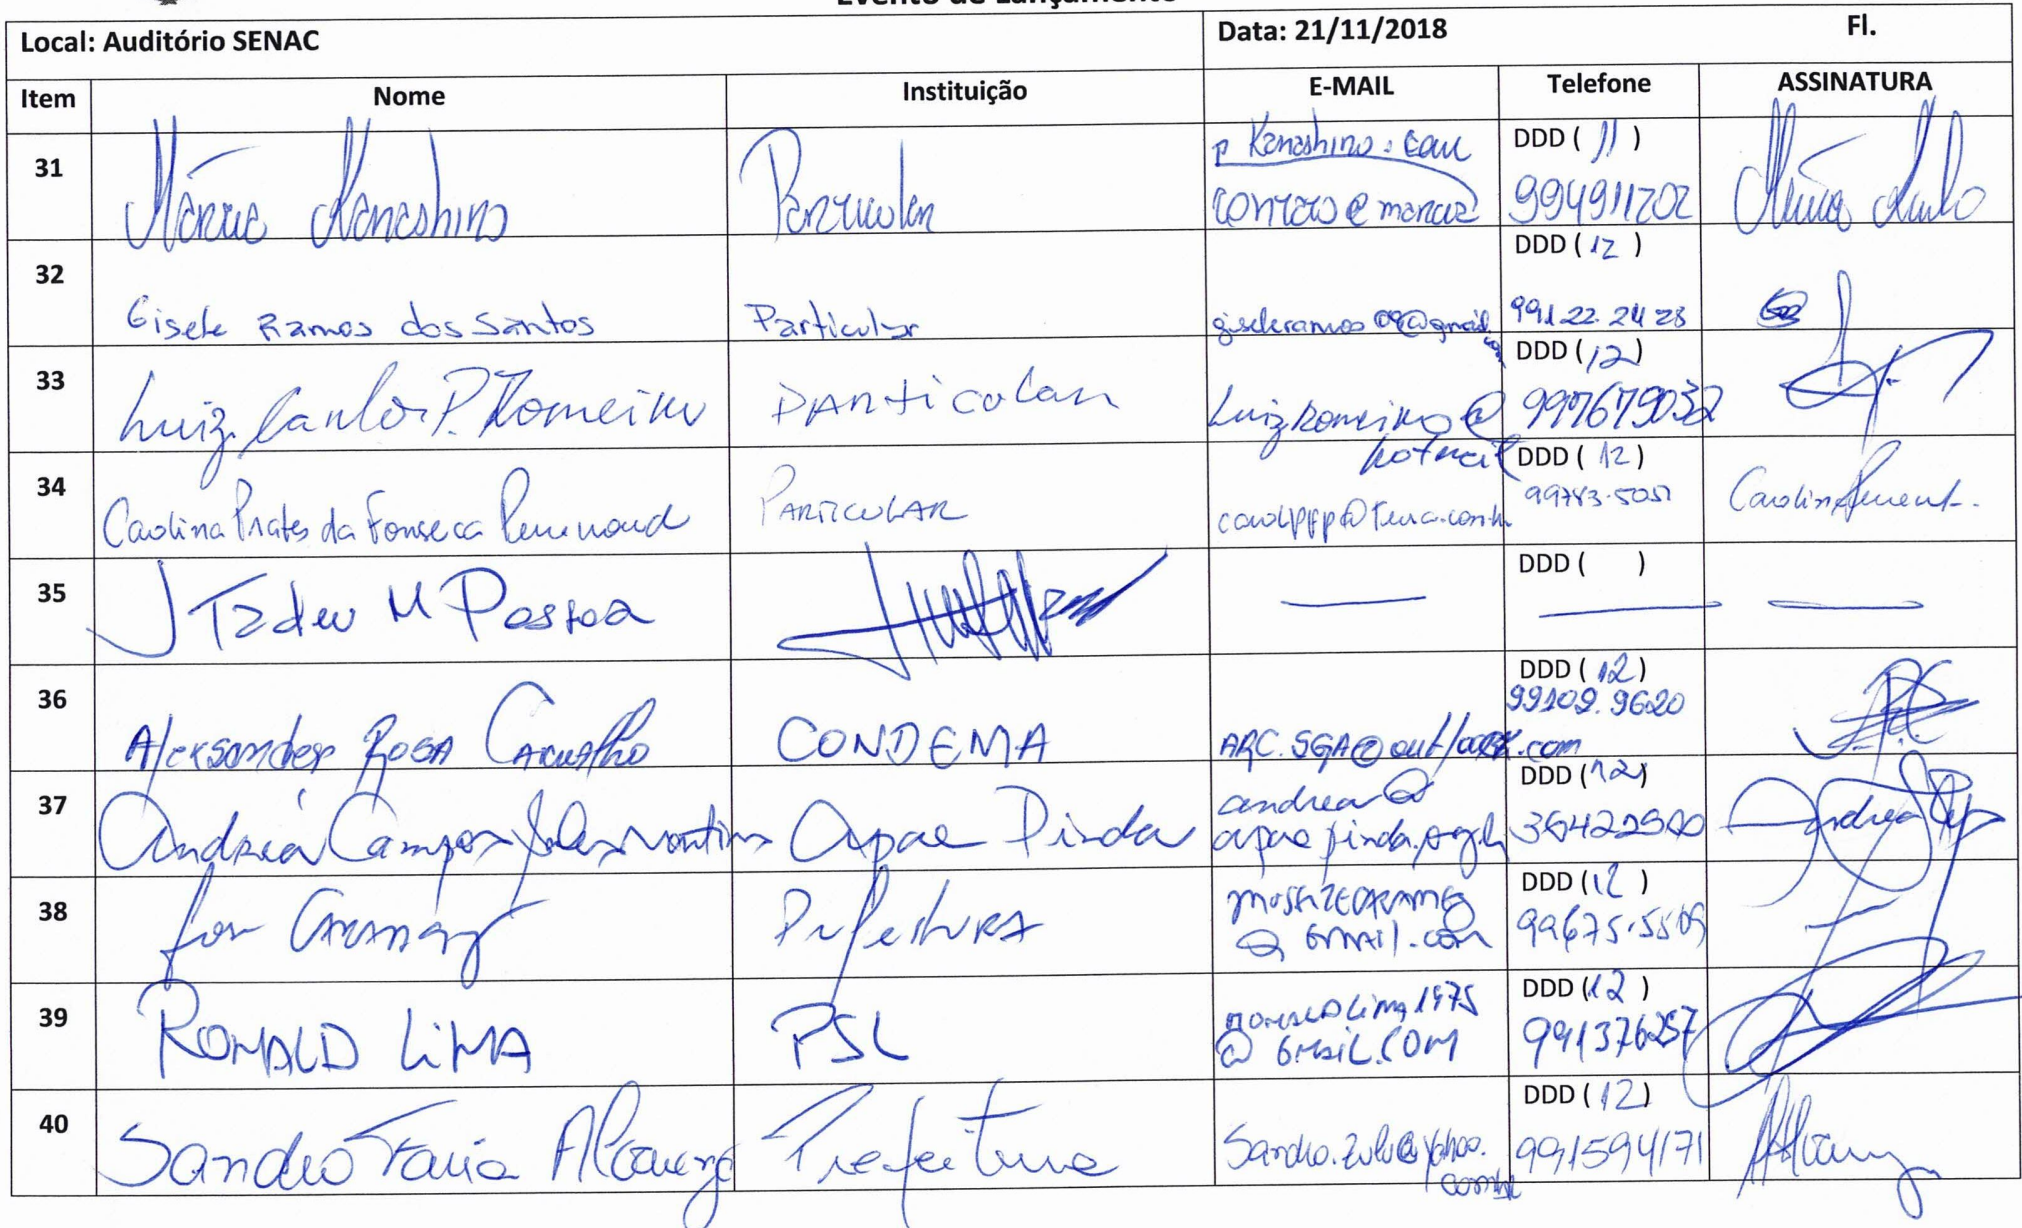 Evento de Lançamento
Local: Auditório SENAC Data: 21/11/2018 Fl.
Item Nome Instituição E-MAIL Telefone ASSINATURA
31 Márcia Kanashiro Particular contato@marcia kanashiro.com DDD (11) 994911202
32 Gisele Ramos dos Santos Particular giseleramos09@gmail.com DDD (12) 99122.2428
33 Luiz Carlos P. Romeiro Particular luizromeiro@hotmail DDD (12) 997679032
34 Carolina Prates da Fonseca PARTICULAR DDD (12) 99783-5051
35 J Tadeu M Pessoa — DDD ( ) — —
36 Alexsander Rosa Carvalho CONDEMA ARC.SGA@outlook.com DDD (12) 99109.9620
37 Andréa Campos Sales Martins Apae Pinda andrea@apaepinda.org.br DDD (12) 36422500
38 Prefeitura @GMAIL.com DDD (12) 99675-5509
39 RONALD LIMA PSL RONALDLima1975@GMAIL.COM DDD (12) 991376257
40 Sandro Faria Prefeitura Sandro.zulu@yahoo.com.br DDD (12) 991594171